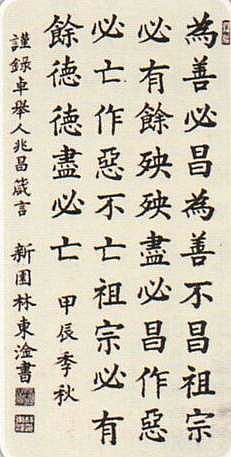 為善必昌為善不昌祖宗
必有餘殃殃盡必昌作惡
必亡作惡不亡祖宗必有
餘德德盡必亡 甲辰季秋
謹錄卓舉人兆昌箴言 新園林東淦書